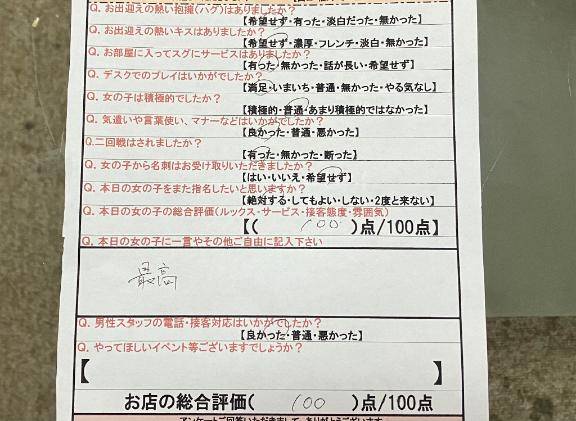 Q. お出迎えの熱い抱擁(ハグ)はありましたか?
【希望せず・有った・淡白だった・無かった】
Q. お出迎えの熱いキスはありましたか?
【希望せず・濃厚・フレンチ・淡白・無かった】
Q. お部屋に入ってスグにサービスはありましたか?
【有った・無かった・話が長い・希望せず】
Q. デスクでのプレイはいかがでしたか?
【満足・いまいち・普通・無かった・やる気なし】
Q. 女の子は積極的でしたか?
【積極的・普通・あまり積極的ではなかった】
Q. 気遣いや言葉使い、マナーなどはいかがでしたか?
【良かった・普通・悪かった】
Q.二回戦はされましたか?
【有った・無かった・断った】
Q. 女の子から名刺はお受け取りいただきましたか?
【はい・いいえ・希望せず】
Q. 本日の女の子をまた指名したいと思いますか?
【絶対する・してもよい・しない・2度と来ない】
Q. 本日の女の子の総合評価(ルックス・サービス・接客態度・雰囲気)
【( 100 )点/100点】
Q. 本日の女の子に一言やその他ご自由に記入下さい
最高
Q. 男性スタッフの電話・接客対応はいかがでしたか?
【良かった・普通・悪かった】
Q. やってほしいイベント等ございますでしょうか?
【 】
お店の総合評価( 100 )点/100点
アンケートご回答いただきまして、ありがとうございます